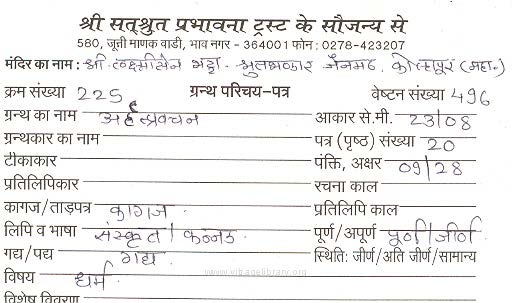 श्री सत्श्रुत प्रभावना ट्रस्ट के सौजन्य से
580, जूत्ती माणक वाडी, भाव नगर - 364001 फोन : 0278-423207
मंदिर का नाम : श्री लक्ष्मीसेन भट्टा जैनमठ, कोल्हापुर (महा॰)
क्रम संख्या 225 ग्रन्थ परिचय-पत्र वेष्टन संख्या 496
ग्रन्थ का नाम अर्हत्प्रवचन आकार से.मी. 23/08
ग्रन्थकार का नाम पत्र (पृष्ठ) संख्या 20
टीकाकार पंक्ति, अक्षर 09/28
प्रतिलिपिकार रचना काल
कागज/ताड़पत्र कागज प्रतिलिपि काल
लिपि व भाषा संस्कृत / कन्नड पूर्ण/अपूर्ण पूर्ण/जीर्ण
गद्य/पद्य गद्य स्थिति: जीर्ण/अति जीर्ण/सामान्य
www.vitragelibrary.org
विषय धर्म
विशेष विवरण